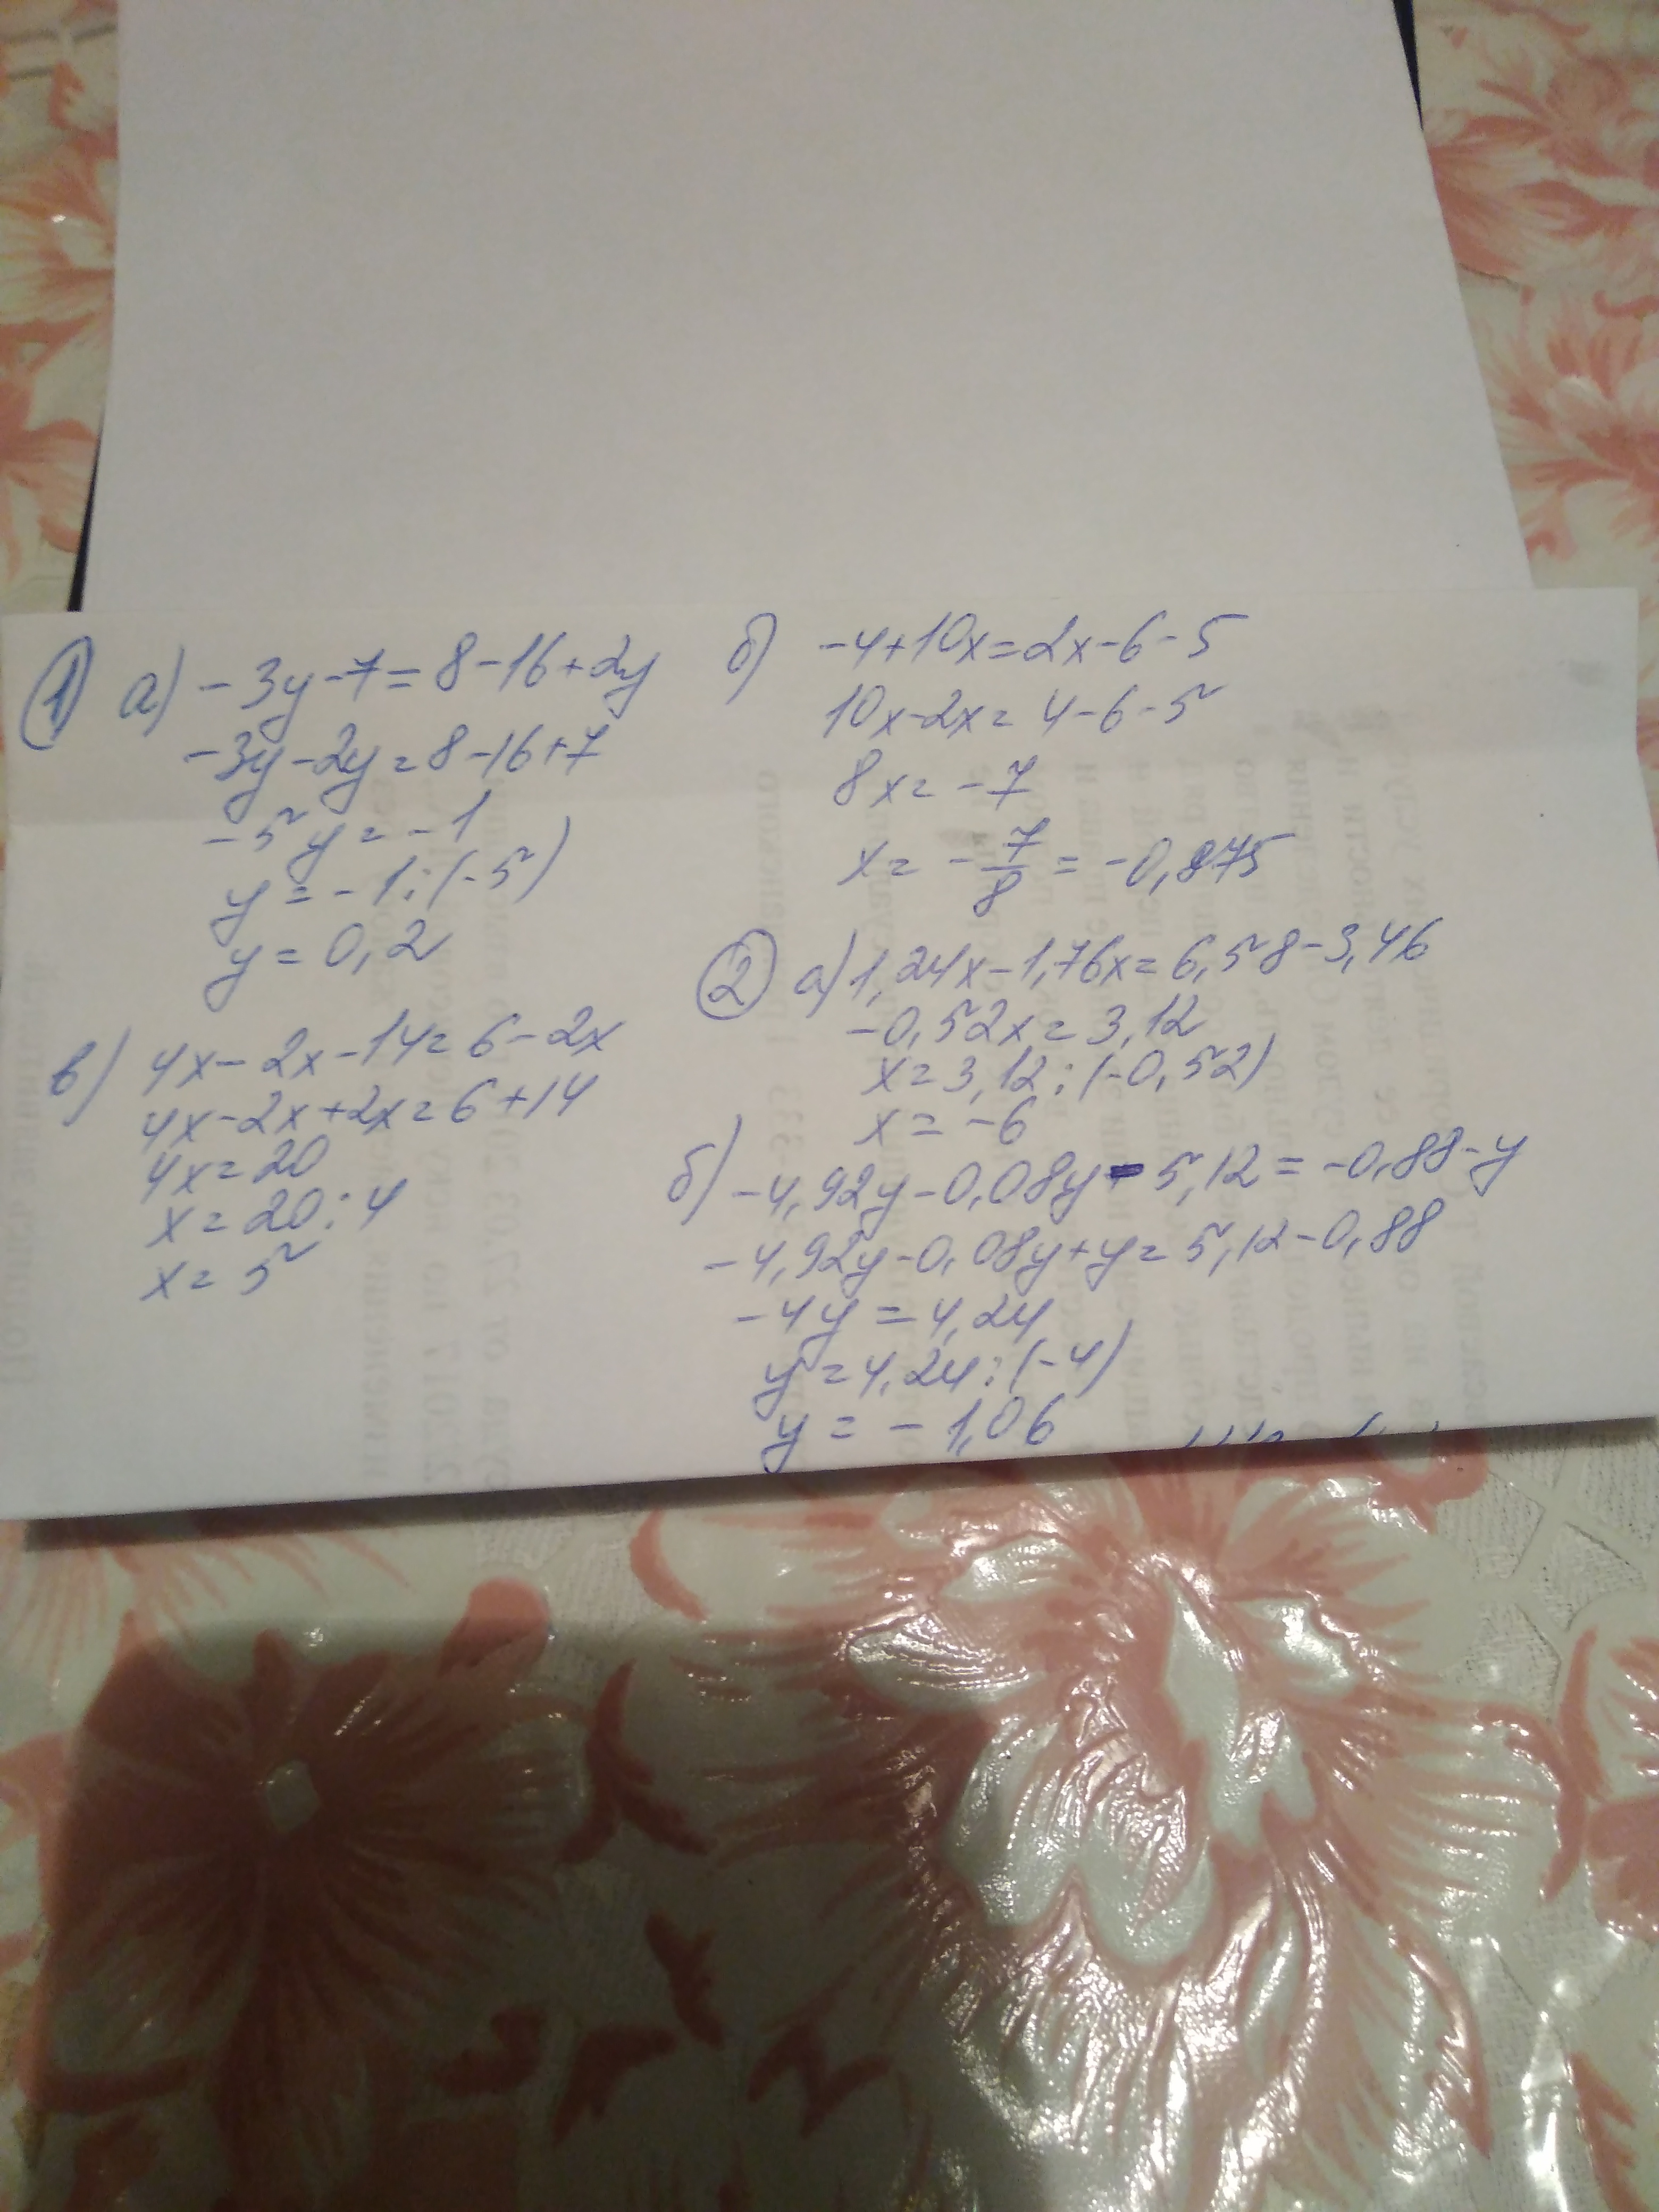 ① а) -3y-7=8-16+2y
-3y-2y=8-16+7
-5y=-1
y=-1:(-5)
y=0,2
б) -4+10x=2x-6-5
10x-2x=4-6-5
8x=-7
x=-7/8=-0,875
в) 4x-2x-14=6-2x
4x-2x+2x=6+14
4x=20
x=20:4
x=5
② а) 1,24x-1,76x=6,58-3,46
-0,52x=3,12
x=3,12:(-0,52)
x=-6
б) -4,92y-0,08y-5,12=-0,88-y
-4,92y-0,08y+y=5,12-0,88
-4y=4,24
y=4,24:(-4)
y=-1,06